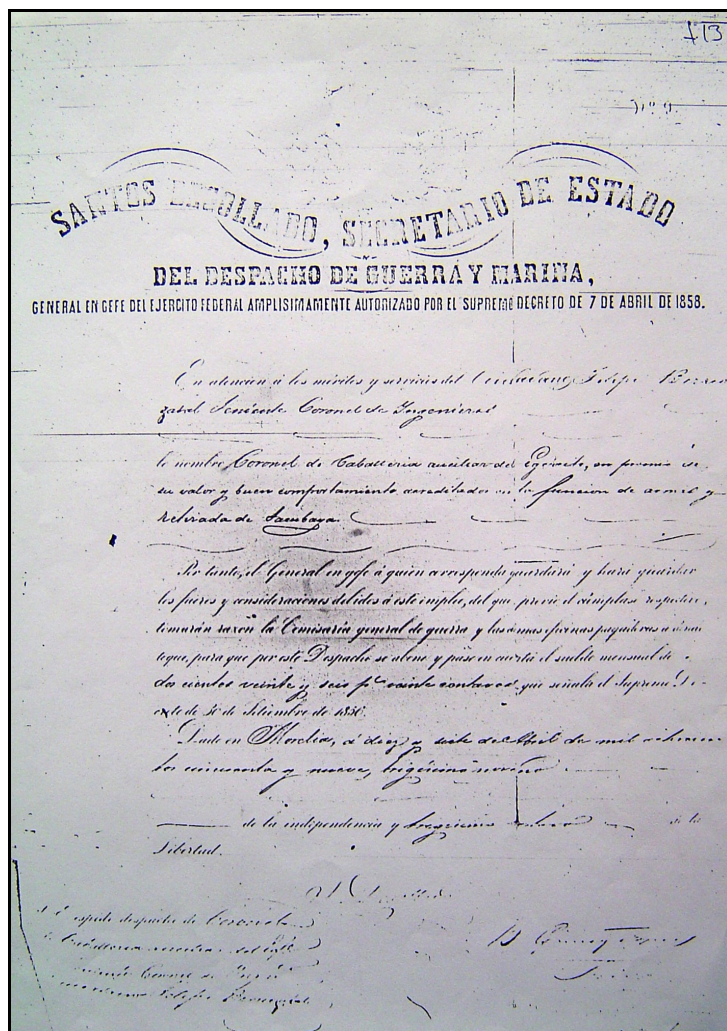 113
SANTOS DEGOLLADO, SECRETARIO DE ESTADO
DEL DESPACHO DE GUERRA Y MARINA,
GENERAL EN GEFE DEL EJERCITO FEDERAL AMPLISIMAMENTE AUTORIZADO POR EL SUPREMO DECRETO DE 7 DE ABRIL DE 1858.
En atencion á los méritos y servicios del Ciudadano Felipe Berrio
zabal Teniente Coronel de Ingenieros
le nombro Coronel de Caballeria auxiliar del Egército, en premio de
su valor y buen comportamiento acreditados en la funcion de armas y
retirada de Tacubaya
Por tanto, el General en gefe á quien corresponda guardará y hará guardar
los fueros y consideraciones debidos á este empleo, del que, previo el cúmplase respectivo,
tomarán razon la Comisaría general de guerra y las demas oficinas pagadoras a donde
toque, para que por este Despacho se abone y pase en cuenta el sueldo mensual de
dos cientos veinte y seis p.s veinte centavos que señala el Supremo De
creto de 30 de Setiembre de 1856.
Dado en Morelia, á diez y siete de Abril de mil ochocien
tos cincuenta y nueve, trigésimo noveno
de la independencia y de la
Libertad.
espide despacho de Coronel
de Caballeria auxiliar del
Teniente Coronel de
Felipe Berriozabal